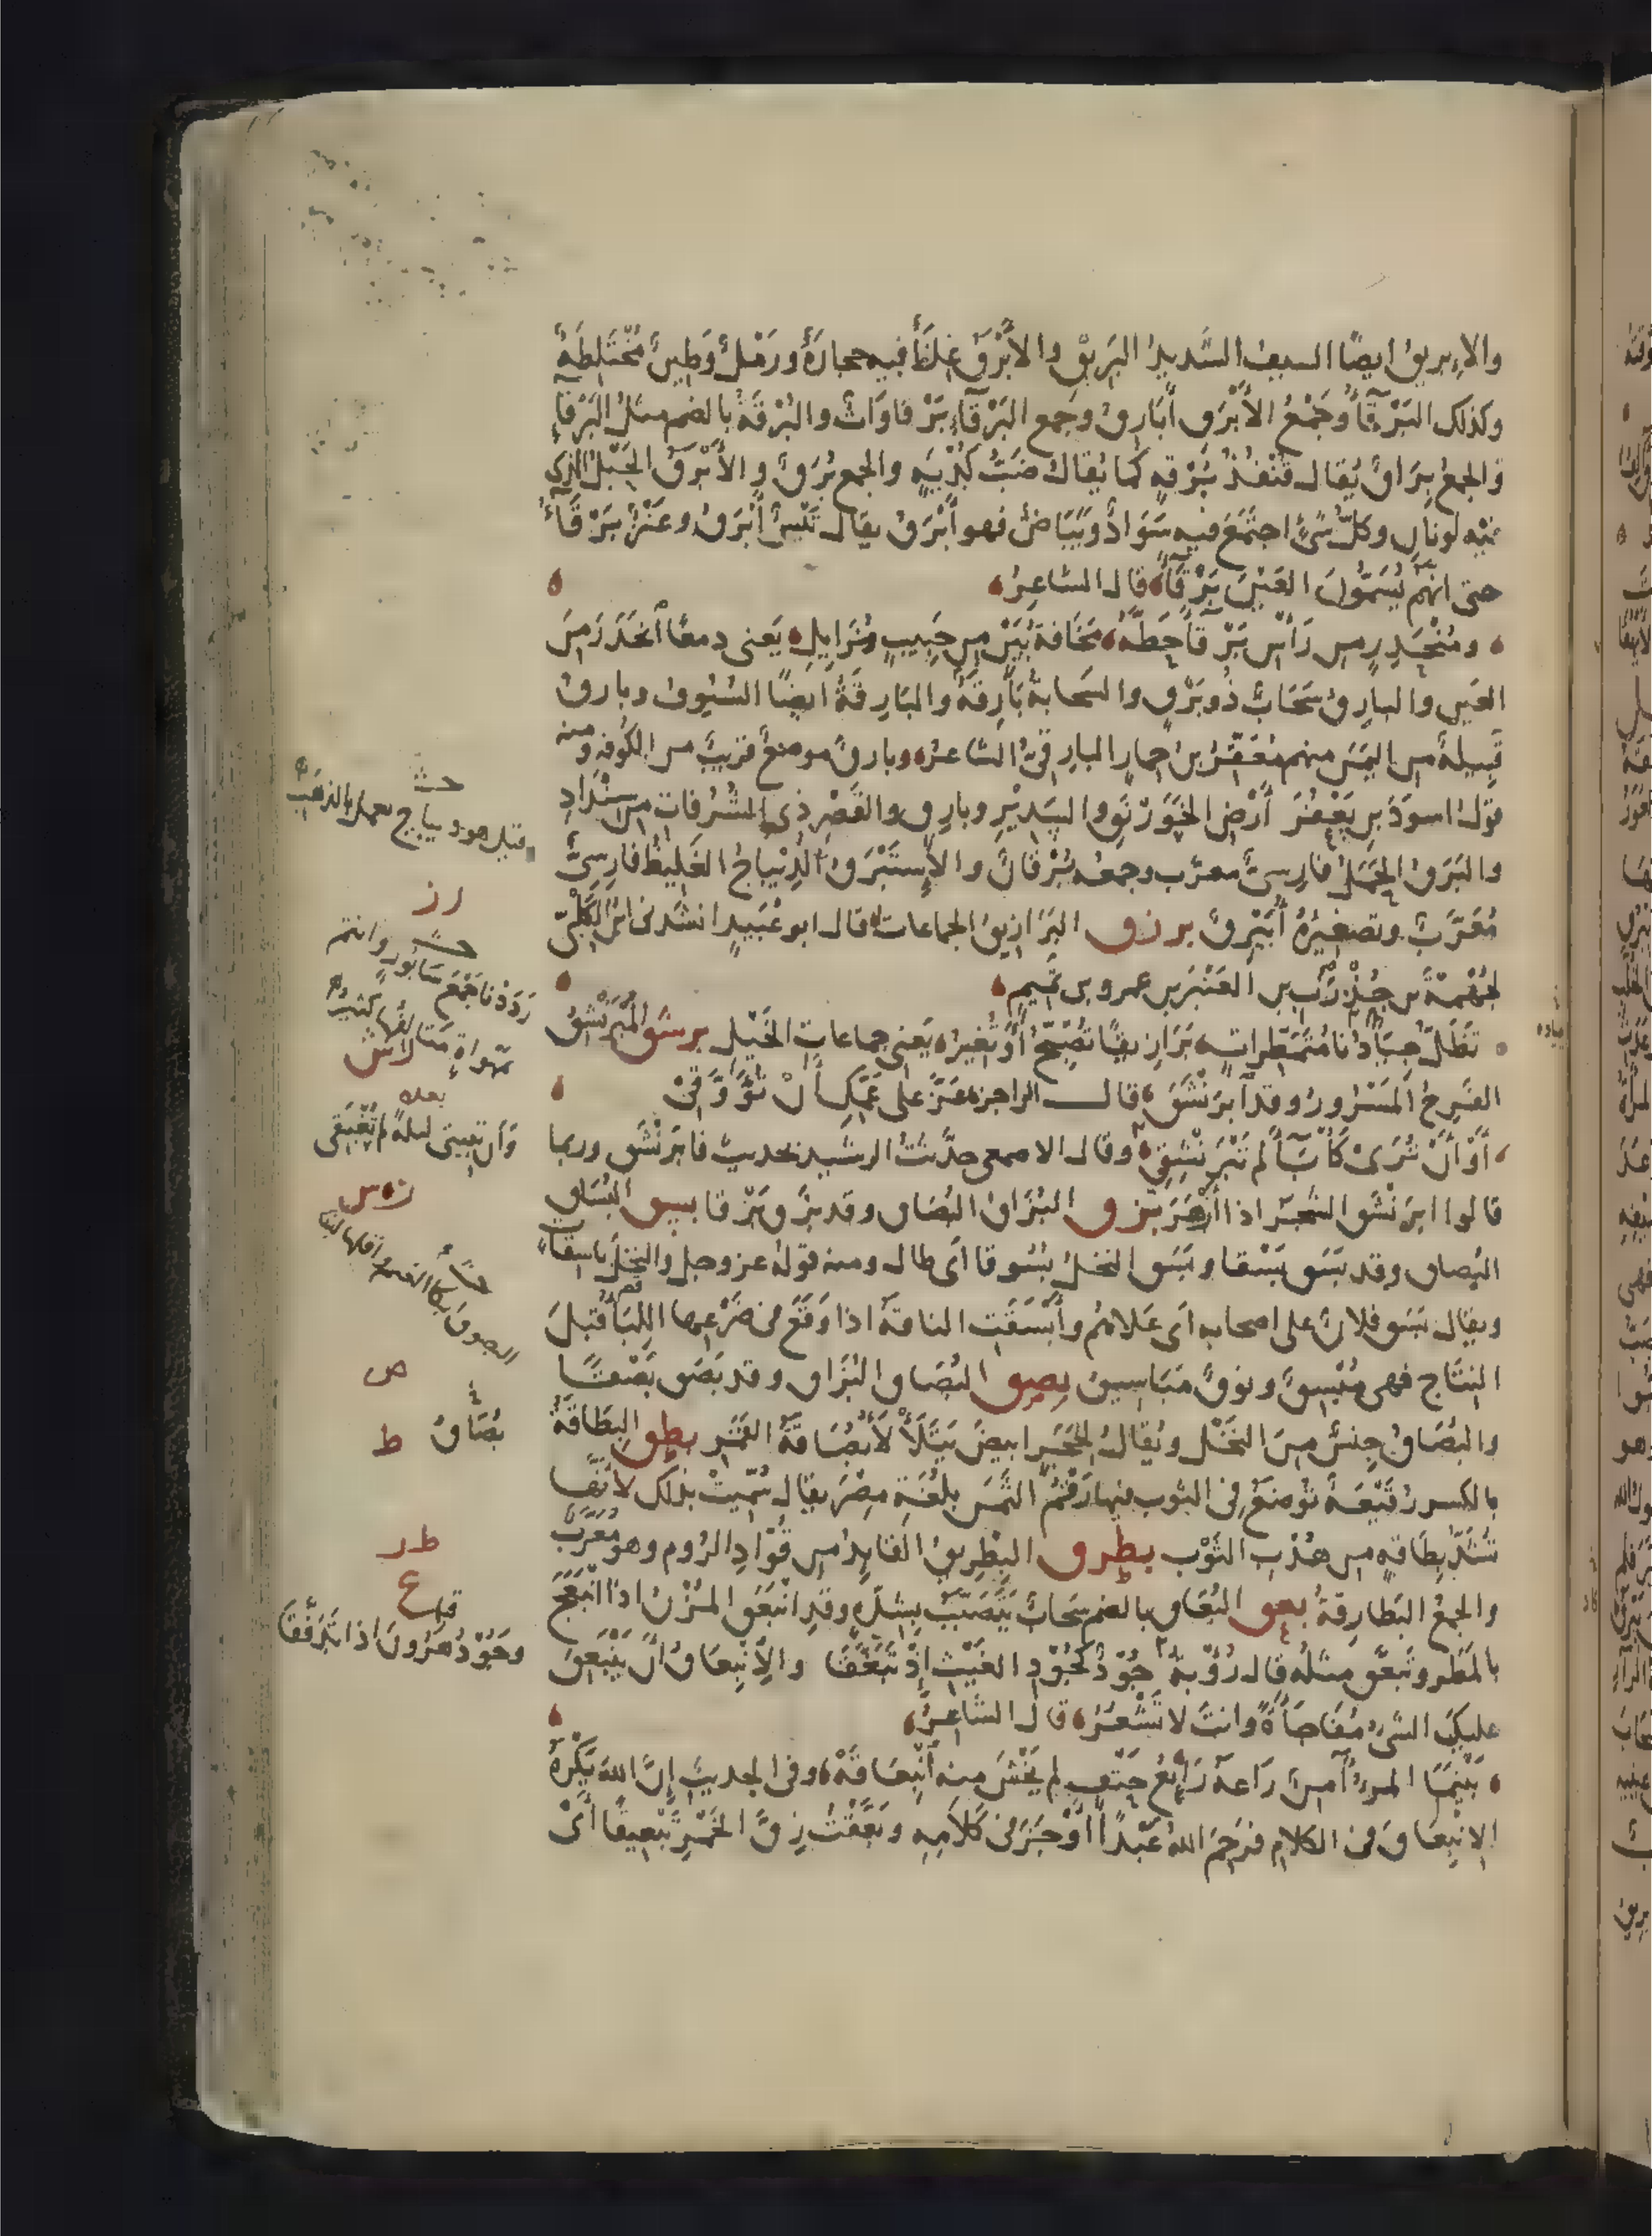 والإبريق ايضًا السيف الشديد البريق والأبْرَق غِلَظٌ فيه حجارَةٌ ورَمْلٌ وَطِينٌ مُخْتَلِطَةٌ
وكذلك البَرْقَاءُ وجَمْعُ الأَبْرَقِ أَبَارِقُ وجمع البَرْقَاءِ بَرْقاوَاتٌ والبُرْقَةُ بالضم مثلُ البَرْقاءِ
والجمعُ بِرَاقٌ يُقال قُنْفُذُ بُرْقةٍ كما يُقالُ ضَبُّ كُدْيَةٍ والجمع بُرَقٌ والأَبْرَقُ الحَبْلُ الذى
فيه لونانِ وكلُّ شىْءٍ اجتَمَعَ فيه سَوَادٌ وَبَيَاضٌ فهو أَبْرَقُ يقال تَيْسٌ أَبْرَقُ وعَنْزٌ بَرْقَاءُ
حتى انهم يُسَمُّونَ العَيْنَ بَرْقَاءَ قال الشاعِرُ
ومُنْحَدِرٍ من رَأْسِ بَرْقَاءَ حَطَّهُ مَخَافةُ بَيْنٍ من حَبِيبٍ مُزَايِلِ يَعنى دمعًا انْحَدَرَ مِنَ
العَينِ والبارِقُ سَحَابٌ ذُو بَرْقٍ والسَحابةُ بَارِقَةٌ والبَارِقَةُ ايضًا السُيُوفُ وبارِقُ
قَبِيلةٌ من اليَمَنِ منهم مُعَقِّرُ بنُ حِمارٍ البارِقىُّ الشاعرُ وبارِقٌ موضعٌ قريبٌ من الكُوفةِ ومنه
قولُ اسودَ بنِ يَعْفُرَ أَرْضِ الخَوَرْنَقِ والسَدِيْرِ وبارِقٍ والقَصْرِ ذِى الشُّرُفاتِ من سِنْدَادِ
والبَرَقُ الحَمَلُ فارِسىٌّ معرّب وجمعُه بُرْقانٌ والإِسْتَبْرَقُ الدِيْباجُ الغَلِيظُ فارِسِىٌّ
مُعَرَّبٌ وتصغيرُهُ أُبَيْرِقٌ برزق البَرَازِيقُ الجماعاتُ قال ابو عُبَيدٍ انشدنى ابنُ الكَلْبِىِّ
لجُهْمةَ بن جُنْدَبِ بن العَنْبَرِ بن عمرو بن تَميمٍ
تَظَلُّ جِيَادُنا مُتَمَطِّراتٍ بَرَازِيقًا تُصَبِّحُ أَوْ تُغِيرُ يَعنى جماعاتِ الخَيْلِ برشق المُبْرَنْشِقُ
الفَرِحُ المَسْرُورُ وقد ابْرَنْشَقَ قال الراجز عَزَّ على عَمِّكِ أَنْ تُؤَوَّقِىْ
أَوْ أَنْ تُرَىْ كَأْبَاءَ لم تَبْرَنْشِقِى وقال الاصمعى حدَّثتُ الرشيد بحديث فابرَنْشَقَ وربما
قالوا ابرَنْشَقَ الشَجَرُ اذا أَزْهَرَ بزق البُزَاقُ البُصَاق وقد بزَقَ بَزْقا بسق البُسَاق
البُصاق وقد بَسَقَ بَسْقا وبَسَقَ النخلُ بُسُوقا أَى طال ومنه قولهُ عز وجل والنخلَ باسقاتٍ
ويقال بَسَقَ فلانٌ على اصحابه اى عَلاهُم وأَبْسَقَت الناقةُ اذا وَقَعَ فى ضَرْعِها اللِبَأُ قبلَ
النِتَاج فهى مُبْسِقٌ ونوقٌ مَبَاسِيق بصق البُصَاق البُزَاق وقد بَصَق بَصْقًا
والبُصَاقُ جِنسٌ مِنَ النَخْل ويُقالُ لِحَجَرٍ ابيضَ يَتَلَأْلَأُ بُصَاقَةُ القَمَرِ بطق البِطَاقَةُ
بالكسر رُقَيْعَةٌ تُوضَعُ فى الثوبِ فيها رَقْمُ الثَمَنِ بلُغَةِ مِصْرَ يقال سُمّيَتْ بذلك لأنَّها
تُشَدُّ بِطَاقةٍ من هُدْبِ الثَوْب بطرق البِطْرِيقُ القايِدُ من قُوَّادِ الرُوم وهو مُعَرَّبٌ
والجمعُ البَطارِقةُ بعق البُعَاق بالضم سَحَابٌ يَتَصَبَّبُ بِشِدَّةٍ وقد انْبَعَقَ المُزْنُ اذا انْبَعَجَ
بالمَطَر وتَبَعَّقَ مثلُه قال رُؤبةُ جُوْدٌ كَجُوْدِ الغَيْثِ إِذْ تَبَعَّقَا والاِنْبِعَاقُ أَنْ يَنْبَعِقَ
عليكَ الشىْءُ مُفَاجَأَةً وانتَ لا تَشْعُرُ قال الشَاعِرُ
بَيْنَمَا المرءُ آمِنٌ رَاعَهُ رَايِعُ حَتْفٍ لم يَخْشَ منه انْبِعَاقَهْ وفى الحديثِ إِنَّ اللهَ يَكْرَهُ
الانْبِعَاقَ فى الكلامِ فَرَحِمَ اللهُ عَبْدًا أَوْجَزَ فى كَلَامِهِ وبَعَّقْتُ زِقَّ الخَمْرِ تَبْعِيقًا أَىْ
قيل هو ديباج يعمل بالذهب
رز
رَدَدْنا جَمْعَ سَابُورٍ وانتم
بمَهْواةٍ مَتَالِفُها كثيرُ
بعده
وَان تبيتى ليلةً لم تُغْبَقى
ص
بُصَاقُ ط
طر
ع
قبله
وَجُوْدُ هَرُونَ اذا تَدَفَّقَا